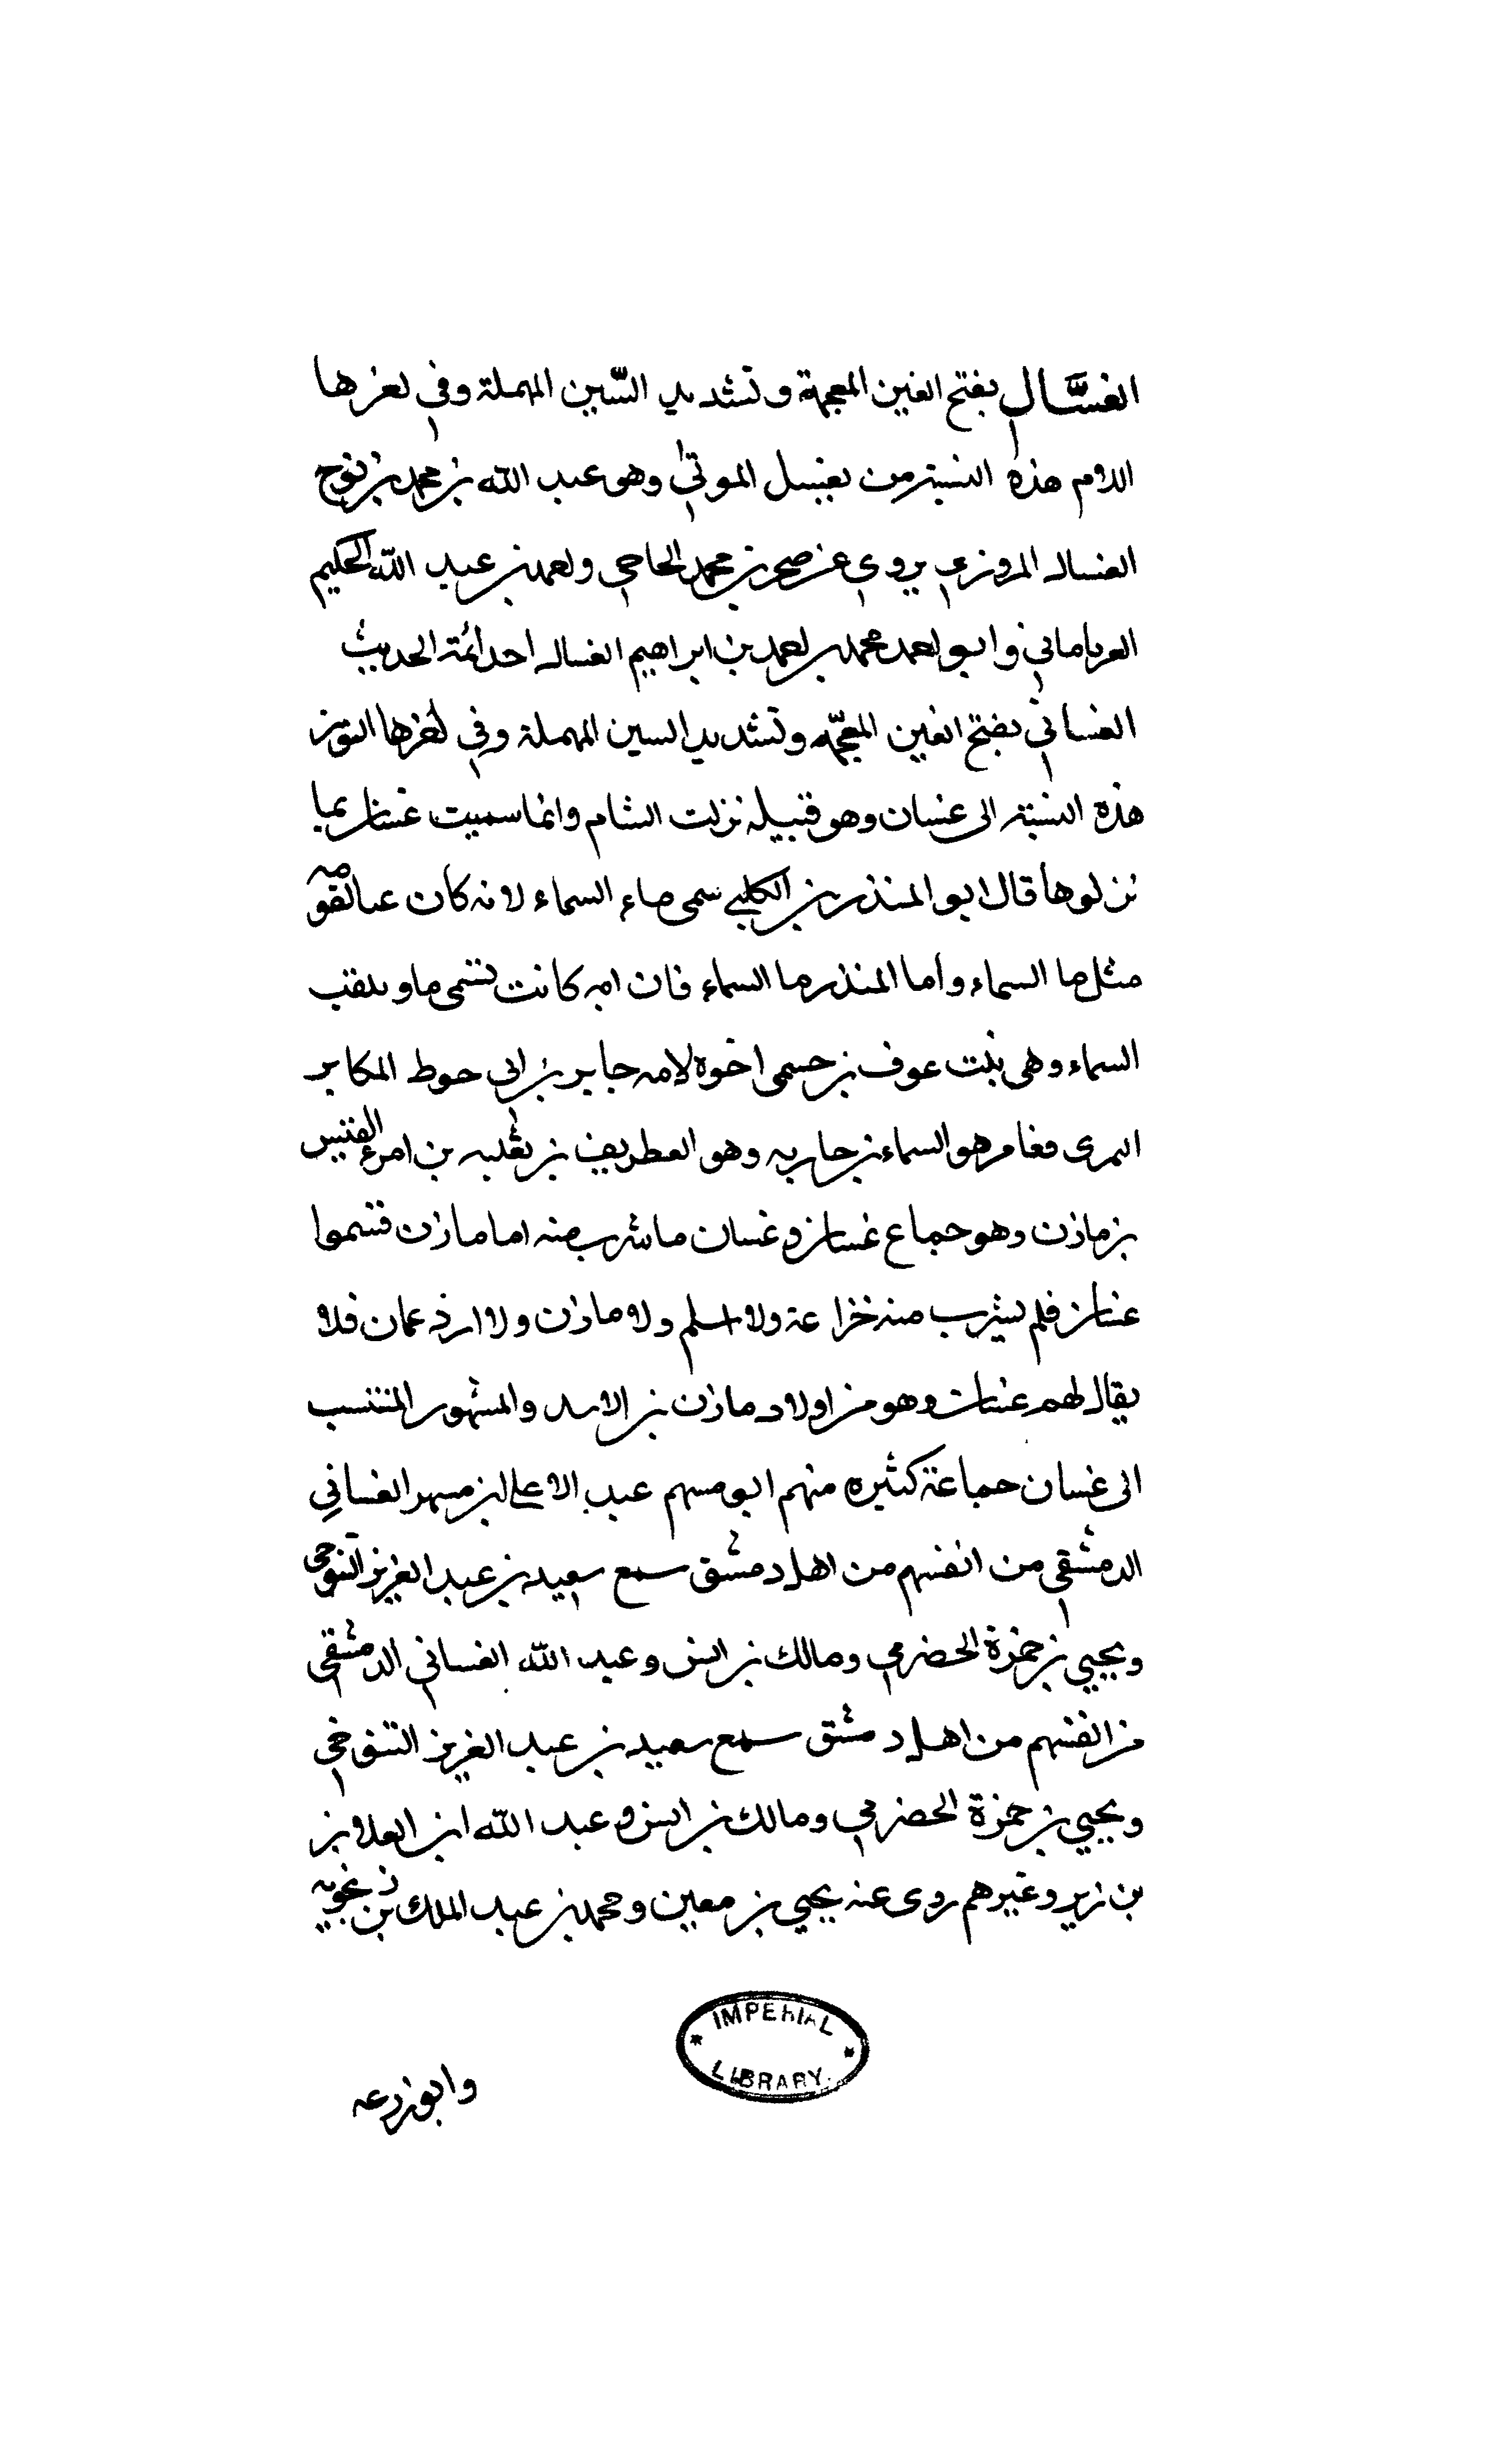 الغسَّال بفتح الغين المعجمة وتشديد السّين المهملة وفي اخرها
اللام هذه النسبة من يغسل الموتى وهو عبد الله بن محمد بن نوح
الغسال المروزي يروي عن صخر بن محمد الحاجي واحمد بن عبد الله الحكيم
الفرياماني وابو احمد محمد بن احمد بن ابراهيم الغسال احد ائمة الحديث
الغساني بفتح الغين المعجّمه وتشديد السين المهملة وفي اخرها النون
هذه النسبة الى غسان وهو قبيله نزلت الشام وانما سميت غسان بما
نزلوها قال ابو المنذر بن الكلبي سمى ماء السماء لانه كان غياث لقومه
مثل ما السماء واما المنذر ما السماء فان امه كانت تسمى ماو يلقب
السماء وهى بنت عوف بن جسمى اخوة لامه جابر بن ابى حوط المكابر
النمرى فعامر هو السماء بن حاربه وهو الغطريف بن ثعلبه بن امرء القيس
بن ماذن وهو جماع غسان وغسان ما شرب منه اما ماذن فتسموا
غسان فلم يشرب منه خزاعة ولا اسلم ولا ماذن ولا ازد عمان فلا
يقال لهم غسان وهو من اولاد ماذن بن الاسد والمشهور المنتسب
الى غسان جماعة كثيره منهم ابو مسهم عبد الاعلى بن مسهر الغساني
الدمشقي من انفسهم من اهل دمشق سمع سعيد بن عبد العزيز التنوخى
ويحيي بن حمزة الحضرمي ومالك بن انس وعبد الله الغساني الدمشقي
من انفسهم من اهل دمشق سمع سعيد بن عبد العزيز التنوخي
ويحيي بن حمزة الحضرمي ومالك بن انس وعبد الله ابن العلا بن
بن زبر وغيرهم روى عنه يحيي بن معين ومحمد بن عبد الملك بن زنجويه
IMPERIAL
LIBRARY
وابو زرعه